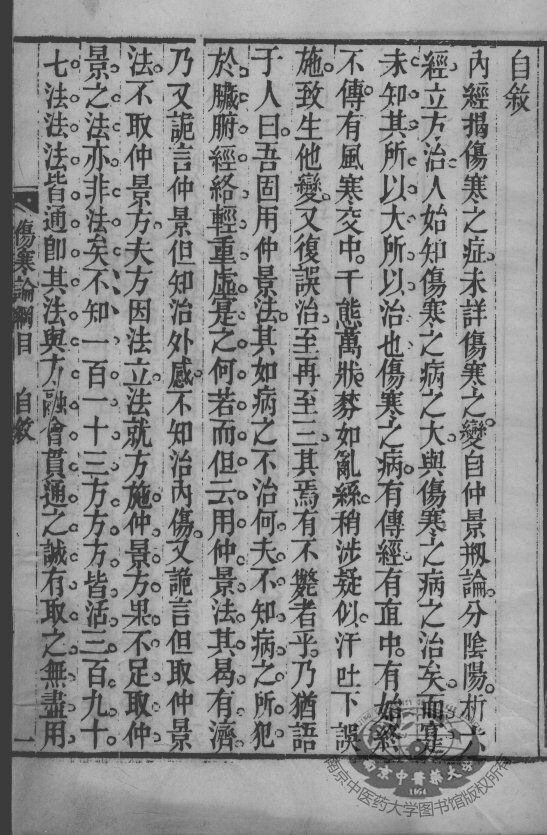 自敘
內經揭傷寒之症未詳傷寒之變自仲景剏論分陰陽析六
經立方治人始知傷寒之病之大與傷寒之病之治矣而寔
未知其所以大所以治也傷寒之病有傳經有直中有始終
不傳有風寒交中千態萬狀棼如亂絲稍涉疑似汗吐下誤
施致生他變又復誤治至再至三其焉有不斃者乎乃猶語
于人曰吾固用仲景法其如病之不治何夫不知病之所犯
於臟腑經絡輕重虛寔之何若而但云用仲景法其曷有濟
乃又詭言仲景但知治外感不知治內傷又詭言但取仲景
法不取仲景方夫方因法立法就方施仲景方果不足取仲
景之法亦非法矣不知一百一十三方方方皆活三百九十
七法法法皆通卽其法與方融會貫通之誠有取之無盡用
傷寒論綱目 自敘 一
南京中醫藥大學
1954
南京中医药大学图书馆版权所有